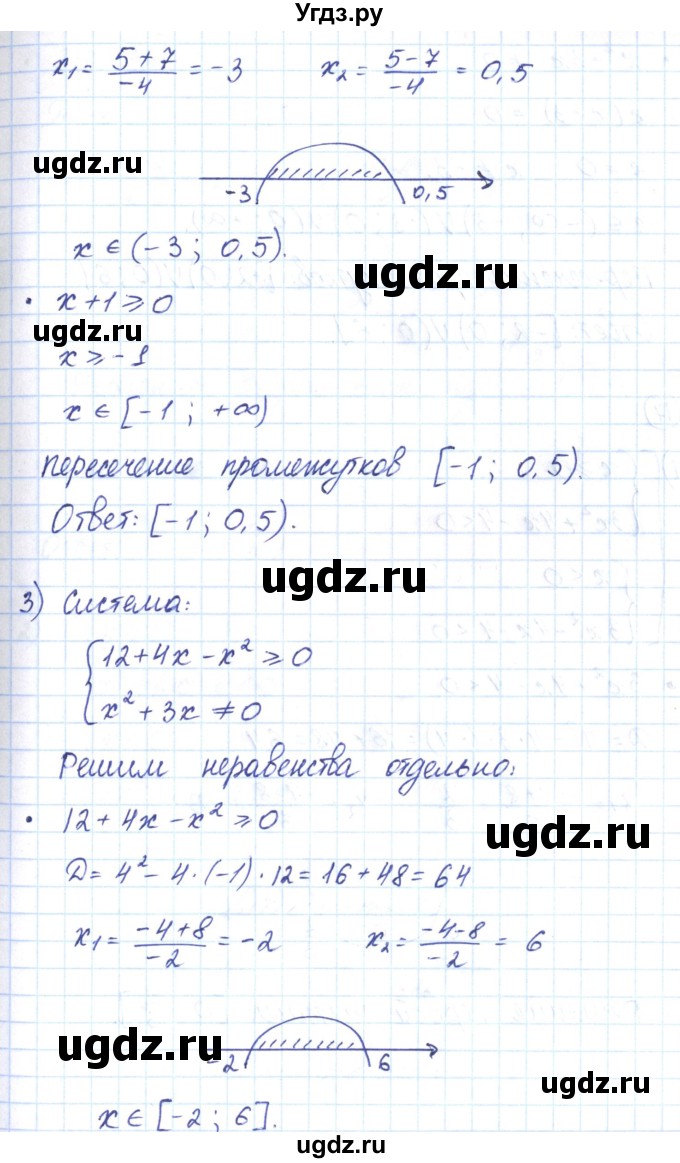 Угдз.ру
x₁ = (5+7)/(-4) = -3    x₂ = (5-7)/(-4) = 0,5
ugdz.ru
-3    0,5
x ∈ (-3; 0,5).
ugdz.ru
• x+1 ≥ 0
ugdz.ru
x ≥ -1
x ∈ [-1; +∞)
пересечение промежутков [-1; 0,5).
Ответ: [-1; 0,5).
ugdz.ru
3) Система:
{ 12+4x-x² ≥ 0
x² + 3x ≠ 0
Решим неравенства отдельно:
• 12 + 4x - x² ≥ 0
ugdz.ru
D = 4² - 4·(-1)·12 = 16 + 48 = 64
x₁ = (-4+8)/(-2) = -2    x₂ = (-4-8)/(-2) = 6
ugdz.ru
-2    6
ugdz.ru
x ∈ [-2; 6].
ugdz.ru